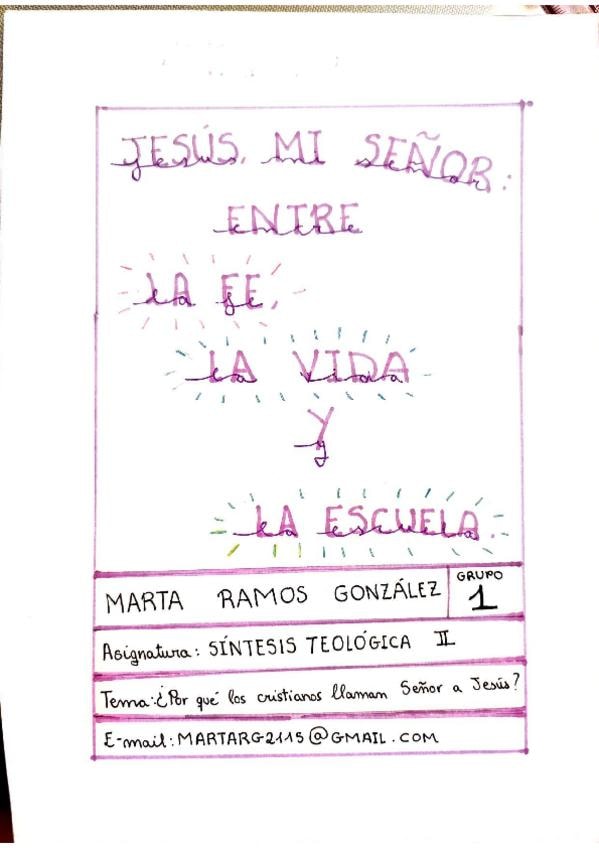 JESÚS, MI SEÑOR:
ENTRE
LA FE,
LA VIDA
Y
LA ESCUELA.
MARTA RAMOS GONZÁLEZ
GRUPO
1
Asignatura: SÍNTESIS TEOLÓGICA II
Tema: ¿Por qué los cristianos llaman Señor a Jesús?
E-mail: MARTARG2115@GMAIL.COM